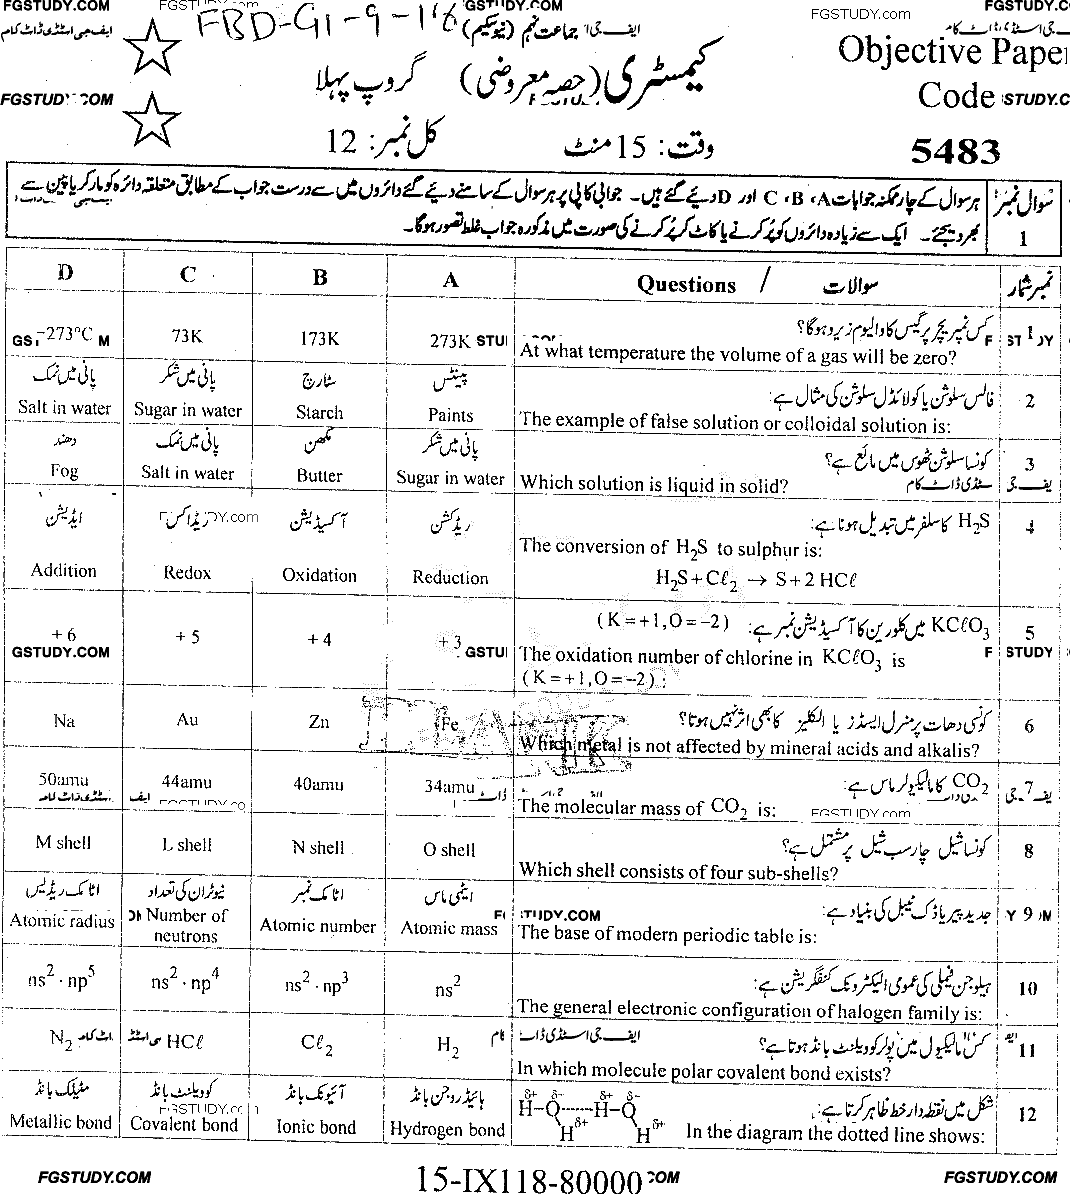 FGSTUDY.COM FGSTUDY.COM FGSTUDY.com FGSTUDY.COM
FBD-G1-9-118
ایف جی اسٹڈی ڈاٹ کام جماعت نہم (نیو سکیم)
Objective Paper
کیمسٹری (حصہ معروضی) گروپ پہلا
Code
FGSTUDY.COM
وقت: 15 منٹ کل نمبر: 12
5483
سوال نمبر 1 ہر سوال کے چار ممکنہ جوابات A، B، C اور D دیئے گئے ہیں۔ جوابی کاپی پر ہر سوال کے سامنے دیئے گئے دائروں میں سے درست جواب کے مطابق متعلقہ دائرہ کو مارکر یا پین سے
بھر دیجئے۔ ایک سے زیادہ دائروں کو پُر کرنے یا کاٹ کر پُر کرنے کی صورت میں مذکورہ جواب غلط تصور ہوگا۔
D C B A Questions / سوالات نمبر شمار
کس ٹمپریچر پر گیس کا والیوم زیرو ہوگا؟ 1
-273°C 73K 173K 273K
At what temperature the volume of a gas will be zero?
پانی میں نمک پانی میں شکر سٹارچ پینٹس فالس سلوشن یا کولائڈل سلوشن کی مثال ہے: 2
Salt in water Sugar in water Starch Paints The example of false solution or colloidal solution is:
دھند پانی میں نمک مکھن پانی میں شکر کونسا سلوشن ٹھوس میں مائع ہے؟ 3
Fog Salt in water Butter Sugar in water Which solution is liquid in solid?
ایڈیشن ریڈاکس آکسیڈیشن ریڈکشن H₂S کا سلفر میں تبدیل ہونا ہے: 4
The conversion of H₂S to sulphur is:
Addition Redox Oxidation Reduction H₂S+Cℓ₂ → S+2HCℓ
KCℓO₃ میں کلورین کا آکسیڈیشن نمبر ہے: (K=+1,O=-2) 5
+6 +5 +4 +3
GSTUDY.COM The oxidation number of chlorine in KCℓO₃ is
(K=+1,O=-2):
کونسی دھات پر منرل ایسڈز یا الکلیز کا بھی اثر نہیں ہوتا؟ 6
Na Au Zn Fe
Which metal is not affected by mineral acids and alkalis?
50amu 44amu 40amu 34amu CO₂ کا مالیکیولر ماس ہے: 7
The molecular mass of CO₂ is: FGSTUDY.com
M shell L shell N shell O shell کونسا شیل چار سب شیل پر مشتمل ہے؟ 8
Which shell consists of four sub-shells?
اٹامک ریڈیس نیوٹران کی تعداد اٹامک نمبر ایٹمی ماس جدید پیریاڈک ٹیبل کی بنیاد ہے: 9
Atomic radius Number of neutrons Atomic number Atomic mass The base of modern periodic table is:
ns²·np⁵ ns²·np⁴ ns²·np³ ns² ہیلوجن فیملی کی عمومی الیکٹرونک کنفگریشن ہے: 10
The general electronic configuration of halogen family is:
N₂ HCℓ Cℓ₂ H₂ کس مالیکیول میں پولر کوویلنٹ بانڈ ہوتا ہے؟ 11
In which molecule polar covalent bond exists?
مٹیلک بانڈ کوویلنٹ بانڈ آئیونک بانڈ ہائیڈروجن بانڈ شکل میں نقطہ دار خط ظاہر کرتا ہے: 12
Metallic bond Covalent bond Ionic bond Hydrogen bond In the diagram the dotted line shows:
δ+ δ- δ+ δ-
H–O......H–O
H δ+ H δ+
FGSTUDY.COM 15-IX118-80000 FGSTUDY.COM